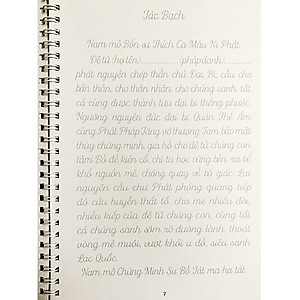 Tác Bạch
Nam mô Bổn sư Thích Ca Mâu Ni Phật
Đệ tử (họ tên)............(pháp danh)............
phát nguyện chép thần chú Đại Bi, cầu cho
bản thân, cho thân nhân, cho chúng sanh tất
cả cùng được thành tựu đại bi thắng phước.
Ngưỡng nguyện đức đại bi Quán Thế Âm
cùng Phật Pháp Tăng vô thượng Tam bảo mắt
thủy chứng minh, gia hộ cho đệ tử chúng con,
tâm Bồ đề kiên cố, chí tu học vững bền, xa bể
khổ nguồn mê, chóng quay về bờ giác. Lại
nguyện cầu chư Phật phóng quang tiếp
độ cửu huyền thất tổ, cha mẹ nhiều đời,
nhiều kiếp của đệ tử chúng con, cùng tất
cả chúng sanh sớm rõ đường lành, thoát
vòng mê muội, vượt khỏi u đồ, siêu sanh
Lạc Quốc.
Nam mô Chứng Minh Sư Bồ Tát ma ha tát.
7